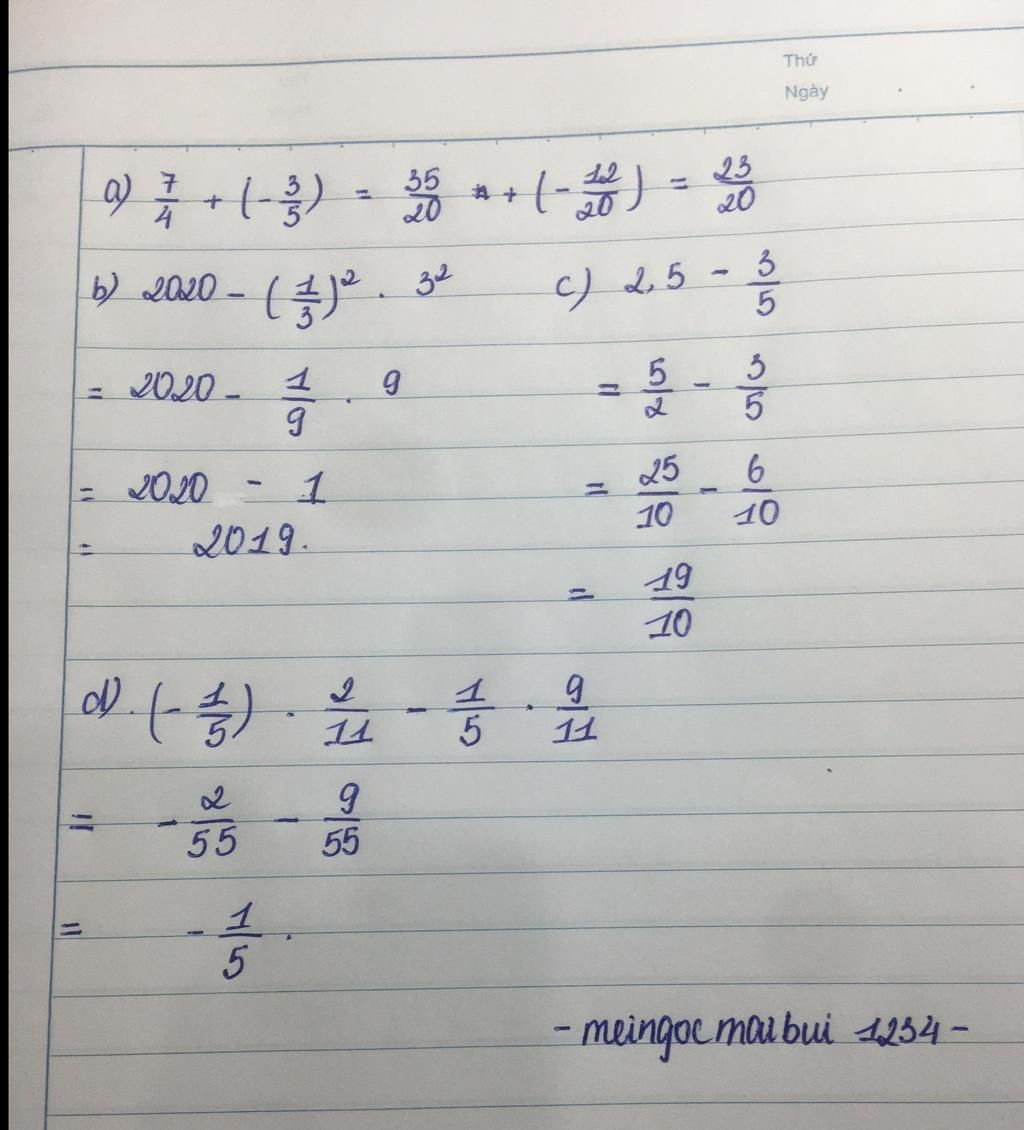 Thứ
Ngày
a) 7/4 + (-3/5) = 35/20 + (-12/20) = 23/20
b) 2020 - (1/3)² . 3²
= 2020 - 1/9 . 9
= 2020 - 1
= 2019.
c) 2,5 - 3/5
= 5/2 - 3/5
= 25/10 - 6/10
= 19/10
d). (-1/5) . 2/11 - 1/5 . 9/11
= -2/55 - 9/55
= -1/5 .
- meingocmaibui 1234 -